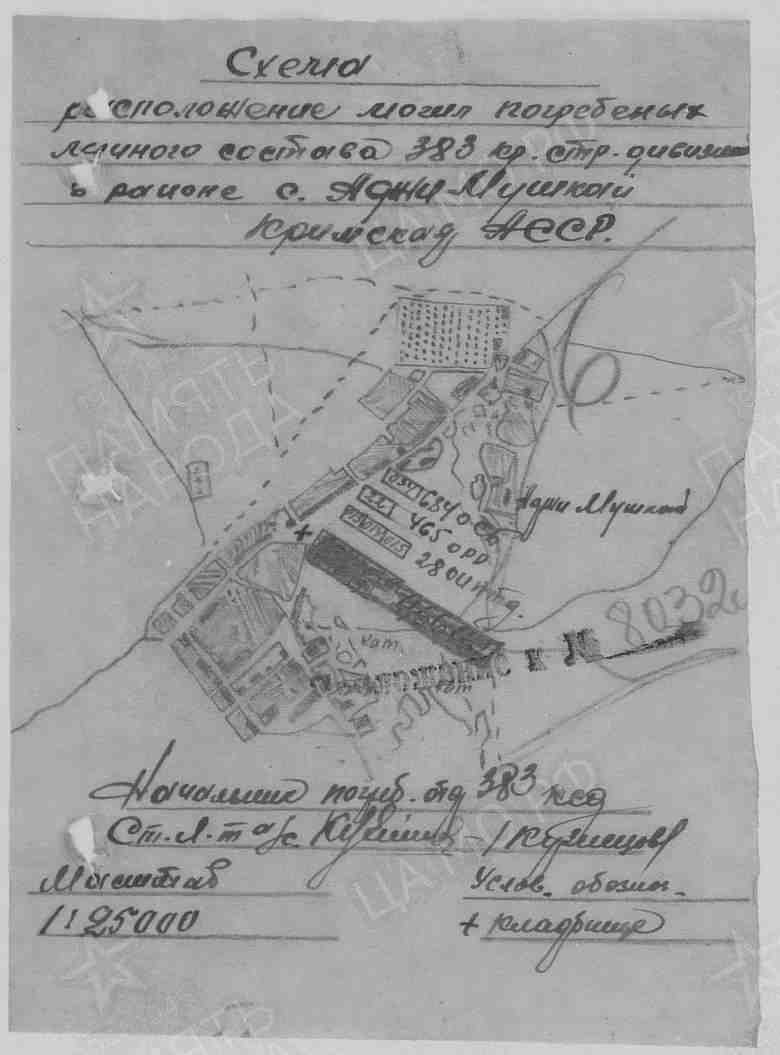 Схема
расположение могил погребеных
личного состава 383 кр. стр. дивизии
в районе с. Аджи Мушкай
Кримская АССР.
6
684 О
465 ОРР
28 ОИПТД.
Аджи Мушкай
+
кат.
8032с
Приложение к №
кат
Начальник погреб. отд 383 ксд
Ст. Л-т а/с /Кузнецов/
Масштаб
1:25000
Услов. обозн.
+ кладбище
ПАМЯТЬ
НАРОДА
ЦАМО РФ